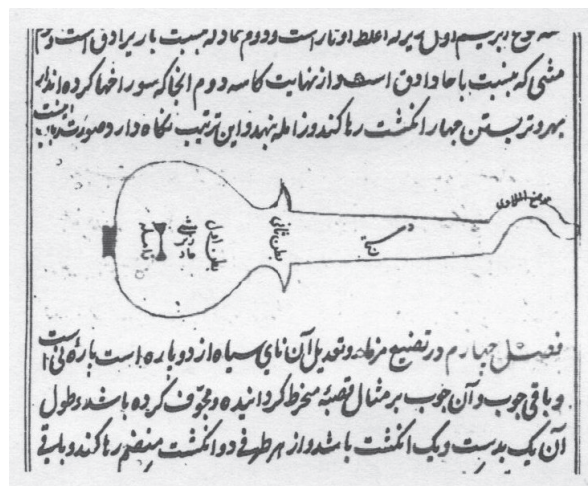 ابریسم اول زیر که اغلظ اوتار است و دوم حاد که بنسبت با زیر ادق است و سوم
مثنی که بنسبت با حاد ادق است و از نهایت کاسه دوم آنجا که سوراخها کرده اند از
بهر وتر بستن چهار انگشت رها کند و زامله نهد و این ترتیب نگاه دارد صورت اینست
موضع الملاوی
دسته
بطن ثانی
بطن اول
فصل چهارم در تصنیع مزمار و تعدیل آن نای سیاه از دو پاره است پاره نی است
و باقی چوب و آن چوب بر مثال قصبهٔ منخرط کردانیده و مجوّف کرده باشد و طول
آن یک بدست و یک انگشت باشد و از هر طرفی دو انگشت منضم رها کند و باقی